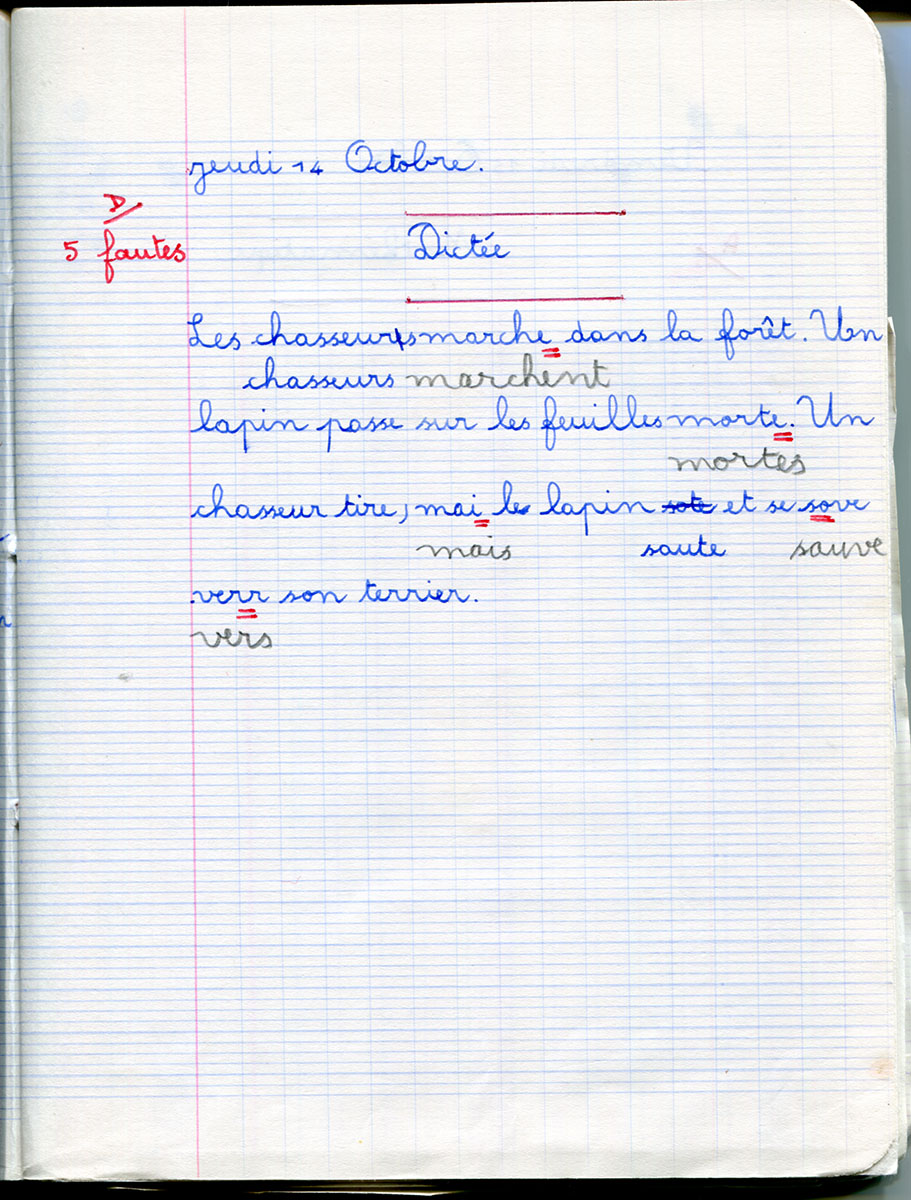 jeudi 14 Octobre.
D
5 fautes
Dictée
Les chasseurs marche dans la forêt. Un
chasseurs marchent
lapin passe sur les feuilles morte. Un
mortes
chasseur tire, mai le lapin sote et se sove
mais saute sauve
verr son terrier.
vers